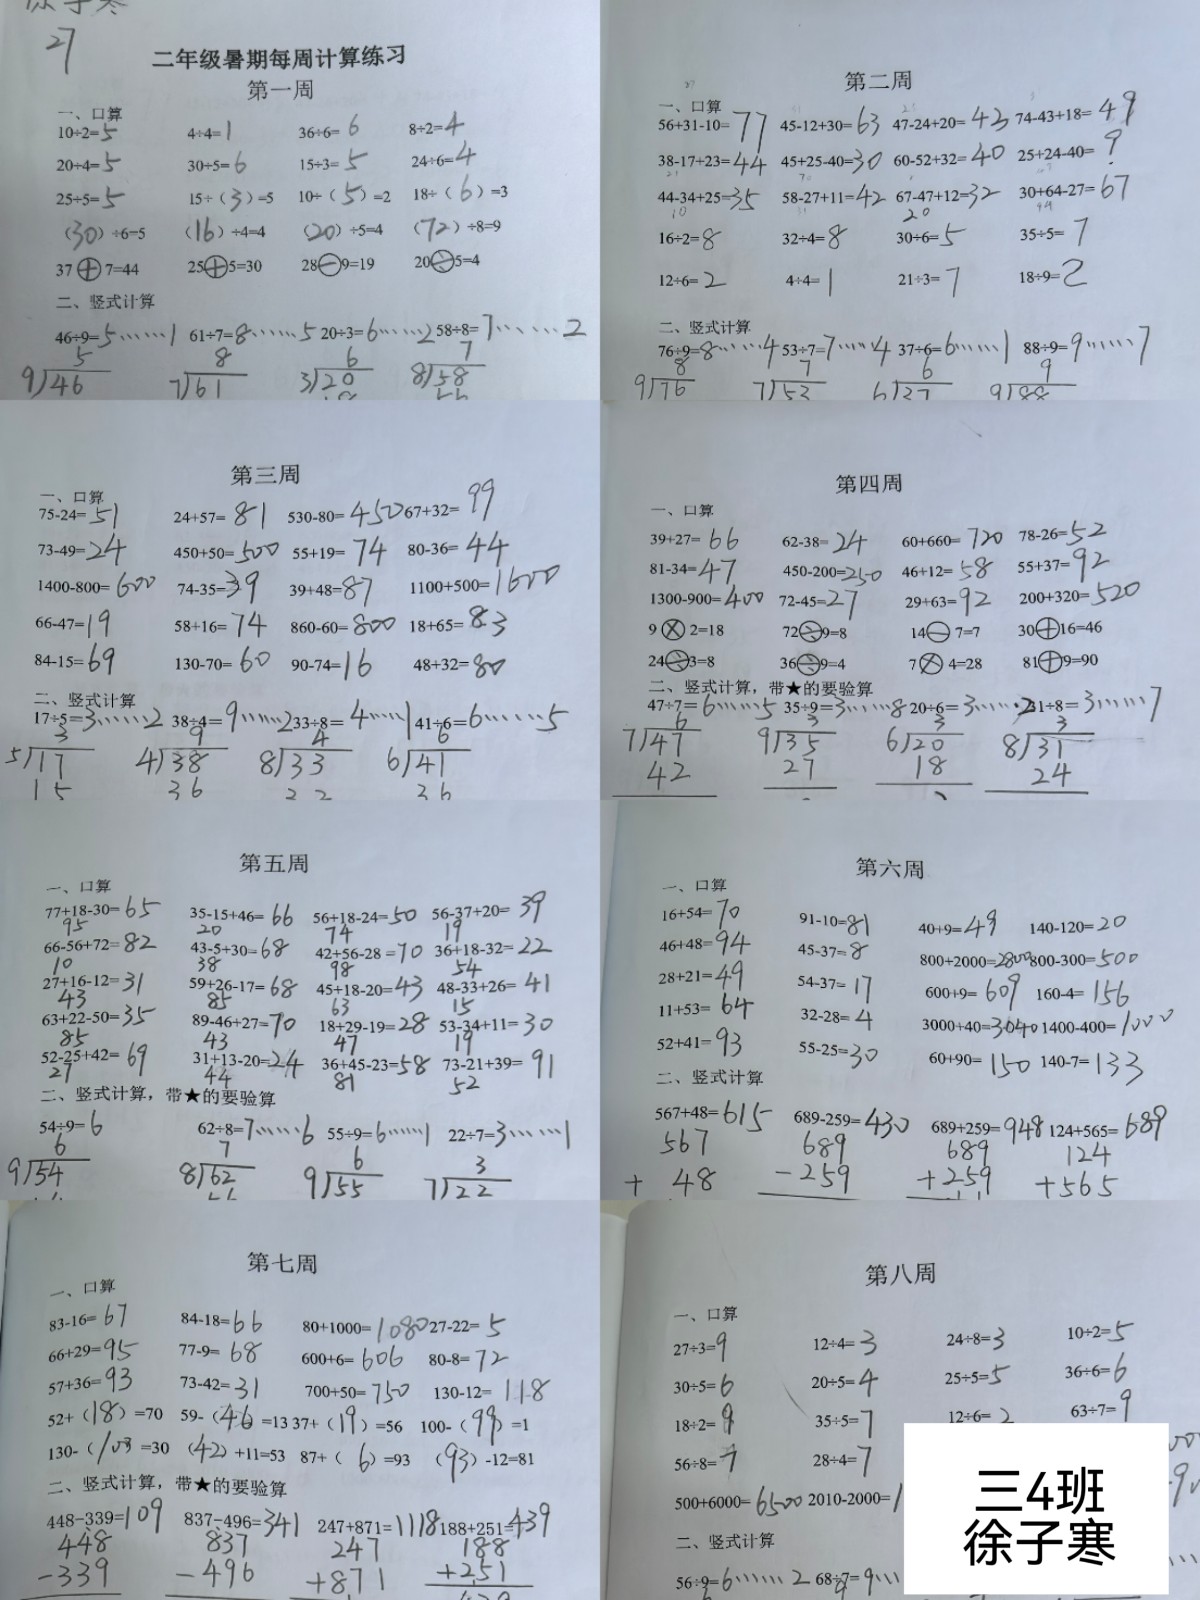 27
二年级暑期每周计算练习
第一周
一、口算
10÷2=5 4÷4=1 36÷6=6 8÷2=4
20÷4=5 30÷5=6 15÷3=5 24÷6=4
25÷5=5 15÷（3）=5 10÷（5）=2 18÷（6）=3
（30）÷6=5 （16）÷4=4 （20）÷5=4 （72）÷8=9
37+7=44 25+5=30 28−9=19 20÷5=4
二、竖式计算
46÷9=5……1 61÷7=8……5 20÷3=6……2 58÷8=7……2
5 8 6 7
9)46 7)61 3)20 8)58
第二周
一、口算
56+31-10=77 45-12+30=63 47-24+20=43 74-43+18=49
38-17+23=44 45+25-40=30 60-52+32=40 25+24-40=9
44-34+25=35 58-27+11=42 67-47+12=32 30+64-27=67
16÷2=8 32÷4=8 30÷6=5 35÷5=7
12÷6=2 4÷4=1 21÷3=7 18÷9=2
二、竖式计算
76÷9=8……4 53÷7=7……4 37÷6=6……1 88÷9=9……7
8 7 6 9
9)76 7)53 6)37 9)88
第三周
一、口算
75-24=51 24+57=81 530-80=450 67+32=99
73-49=24 450+50=500 55+19=74 80-36=44
1400-800=600 74-35=39 39+48=87 1100+500=1600
66-47=19 58+16=74 860-60=800 18+65=83
84-15=69 130-70=60 90-74=16 48+32=80
二、竖式计算
17÷5=3……2 38÷4=9……2 33÷8=4……1 41÷6=6……5
3 9 4 6
5)17 4)38 8)33 6)41
15 36 32 36
第四周
一、口算
39+27=66 62-38=24 60+660=720 78-26=52
81-34=47 450-200=250 46+12=58 55+37=92
1300-900=400 72-45=27 29+63=92 200+320=520
9×2=18 72÷9=8 14−7=7 30+16=46
24÷3=8 36÷9=4 7×4=28 81+9=90
二、竖式计算，带★的要验算
47÷7=6……5 35÷9=3……8 20÷6=3……2 31÷8=3……7
6 3 3 3
7)47 9)35 6)20 8)31
42 27 18 24
第五周
一、口算
77+18-30=65 35-15+46=66 56+18-24=50 56-37+20=39
95 20 74 19
66-56+72=82 43-5+30=68 42+56-28=70 36+18-32=22
10 38 98 54
27+16-12=31 59+26-17=68 45+18-20=43 48-33+26=41
43 85 63 15
63+22-50=35 89-46+27=70 18+29-19=28 53-34+11=30
85 43 47 19
52-25+42=69 31+13-20=24 36+45-23=58 73-21+39=91
27 44 81 52
二、竖式计算，带★的要验算
54÷9=6 62÷8=7……6 55÷9=6……1 22÷7=3……1
6 7 6 3
9)54 8)62 9)55 7)22
第六周
一、口算
16+54=70 91-10=81 40+9=49 140-120=20
46+48=94 45-37=8 800+2000=2800 800-300=500
28+21=49 54-37=17 600+9=609 160-4=156
11+53=64 32-28=4 3000+40=3040 1400-400=1000
52+41=93 55-25=30 60+90=150 140-7=133
二、竖式计算
567+48=615 689-259=430 689+259=948 124+565=689
567 689 689 124
+ 48 -259 +259 +565
第七周
一、口算
83-16=67 84-18=66 80+1000=1080 27-22=5
66+29=95 77-9=68 600+6=606 80-8=72
57+36=93 73-42=31 700+50=750 130-12=118
52+（18）=70 59-（46）=13 37+（19）=56 100-（99）=1
130-（100）=30 （42）+11=53 87+（6）=93 （93）-12=81
二、竖式计算，带★的要验算
448-339=109 837-496=341 247+871=1118 188+251=439
448 837 247 188
-339 -496 +871 +251
第八周
一、口算
27÷3=9 12÷4=3 24÷8=3 10÷2=5
30÷5=6 20÷5=4 25÷5=5 36÷6=6
18÷2=9 35÷5=7 12÷6=2 63÷7=9
56÷8=7 28÷4=7
500+6000=6500 2010-2000=1
二、竖式计算
56÷9=6……2 68÷7=9…
三4班
徐子寒